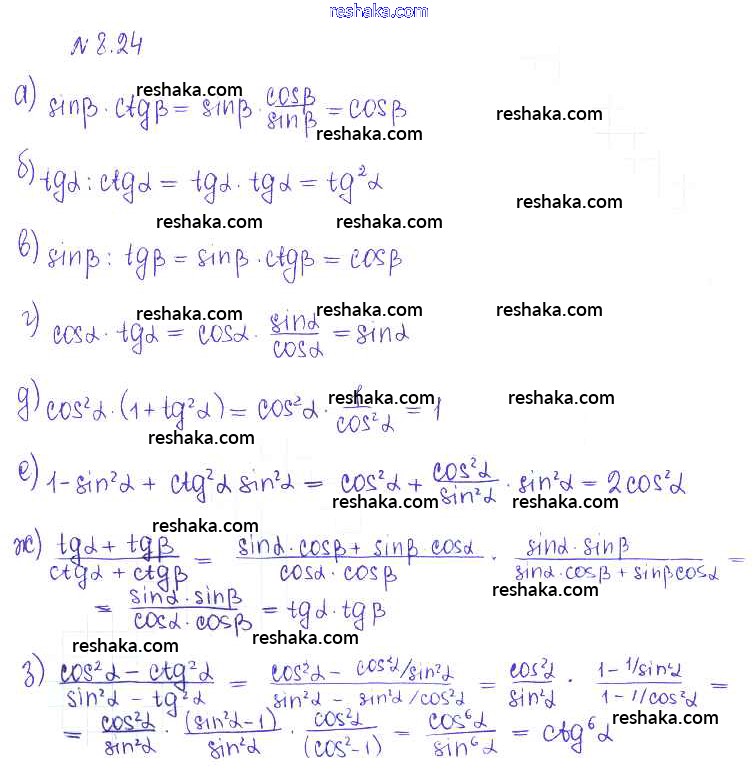 reshaka.com
N 8.24
reshaka.com
а) sinβ · ctgβ = sinβ · cosβ/sinβ = cosβ reshaka.com
reshaka.com
б) tgα : ctgα = tgα · tgα = tg²α
reshaka.com
reshaka.com reshaka.com
в) sinβ : tgβ = sinβ · ctgβ = cosβ
reshaka.com reshaka.com reshaka.com
г) cosα · tgα = cosα · sinα/cosα = sinα
reshaka.com reshaka.com
д) cos²α · (1 + tg²α) = cos²α · 1/cos²α = 1
reshaka.com
е) 1 - sin²α + ctg²α sin²α = cos²α + cos²α/sin²α · sin²α = 2cos²α
reshaka.com reshaka.com
ж) (tgα + tgβ)/(ctgα + ctgβ) = (sinα · cosβ + sinβ cosα)/(cosα · cosβ) · (sinα · sinβ)/(sinα · cosβ + sinβ cosα) =
reshaka.com reshaka.com
= (sinα · sinβ)/(cosα · cosβ) = tgα · tgβ
reshaka.com reshaka.com
з) (cos²α - ctg²α)/(sin²α - tg²α) = (cos²α - cos²α/sin²α)/(sin²α - sin²α/cos²α) = cos²α/sin²α · (1 - 1/sin²α)/(1 - 1/cos²α) =
reshaka.com
= cos²α/sin²α · (sin²α - 1)/sin²α · cos²α/(cos² - 1) = cos⁶α/sin⁶α = ctg⁶α
reshaka.com reshaka.com